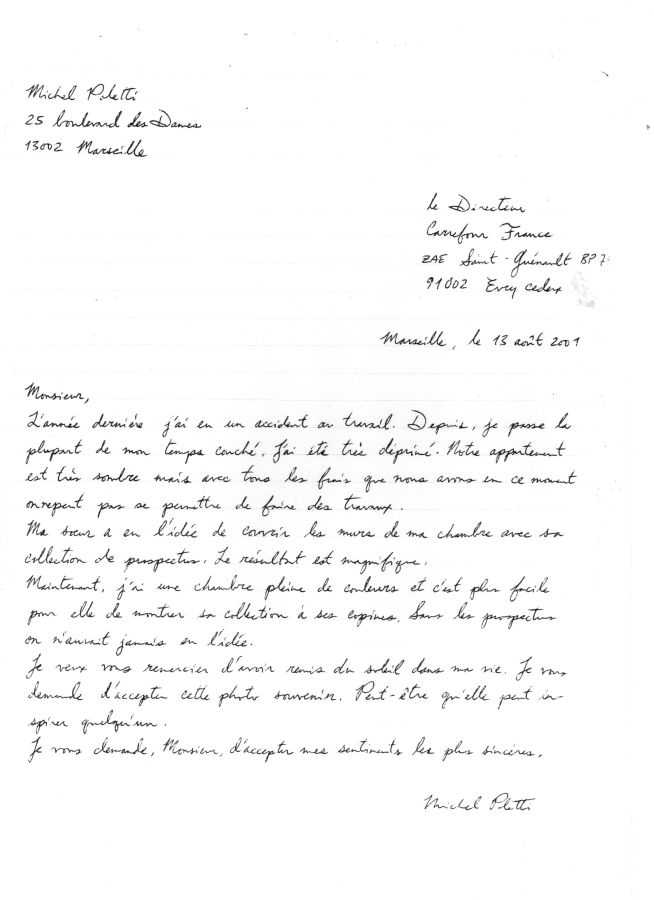 Michel Poletti
25 boulevard des Dames
13002 Marseille
le Directeur
Carrefour France
ZAE Saint-Guénault BP 7
91002 Evry cedex
Marseille, le 13 août 2001
Monsieur,
L'année dernière j'ai eu un accident au travail. Depuis, je passe la
plupart de mon temps couché. J'ai été très déprimé. Notre appartement
est très sombre mais avec tous les frais que nous avons en ce moment
on repeut pas se permettre de faire des travaux.
Ma sœur a eu l'idée de couvrir les murs de ma chambre avec sa
collection de prospectus. Le résultat est magnifique.
Maintenant, j'ai une chambre pleine de couleurs et c'est plus facile
pour elle de montrer sa collection à ses copines. Sans les prospectus
on n'aurait jamais eu l'idée.
Je veux vous remercier d'avoir remis du soleil dans ma vie. Je vous
demande d'accepter cette photo souvenir. Peut-être qu'elle peut in-
spirer quelqu'un.
Je vous demande, Monsieur, d'accepter mes sentiments les plus sincères.
Michel Poletti